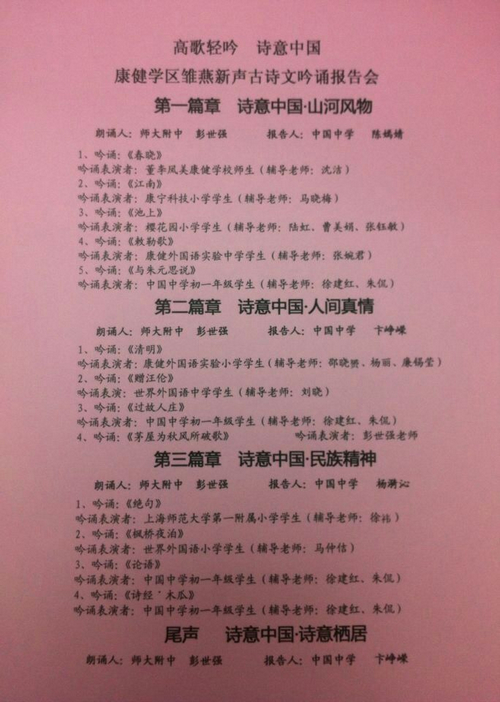 高歌轻吟 诗意中国
康健学区雏燕新声古诗文吟诵报告会
第一篇章 诗意中国·山河风物
朗诵人：师大附中 彭世强 报告人：中国中学 陈嫣婧
1、吟诵：《春晓》
吟诵表演者：董李凤美康健学校师生（辅导老师：沈洁）
2、吟诵：《江南》
吟诵表演者：康宁科技小学学生（辅导老师：马晓梅）
3、吟诵：《池上》
吟诵表演者：樱花园小学学生（辅导老师：陆虹、曹美娟、张钰敏）
4、吟诵：《敕勒歌》
吟诵表演者：康健外国语实验中学学生（辅导老师：张婉君）
5、吟诵：《与朱元思说》
吟诵表演者：中国中学初一年级学生（辅导老师：徐建红、朱侃）
第二篇章 诗意中国·人间真情
朗诵人：师大附中 彭世强 报告人：中国中学 卞峥嵘
1、吟诵：《清明》
吟诵表演者：康健外国语实验小学学生（辅导老师：邵晓赟、杨丽、廉锡莹）
2、吟诵：《赠汪伦》
吟诵表演：世界外国语中学学生（辅导老师：刘晓）
3、吟诵：《过故人庄》
吟诵表演者：中国中学初一年级学生（辅导老师：徐建红、朱侃）
4、吟诵：《茅屋为秋风所破歌》 吟诵表演者：彭世强老师
第三篇章 诗意中国·民族精神
朗诵人：师大附中 彭世强 报告人：中国中学 杨漪沁
1、吟诵：《绝句》
吟诵表演者：上海师范大学第一附属小学学生（辅导老师：徐祎）
2、吟诵：《枫桥夜泊》
吟诵表演者：世界外国语小学学生（辅导老师：马仲佶）
3、吟诵：《论语》
吟诵表演者：中国中学初一年级学生（辅导老师：徐建红、朱侃）
4、吟诵：《诗经·木瓜》
吟诵表演者：中国中学初一年级学生（辅导老师：徐建红、朱侃）
尾声 诗意中国·诗意栖居
朗诵人：师大附中 彭世强 报告人：中国中学 卞峥嵘